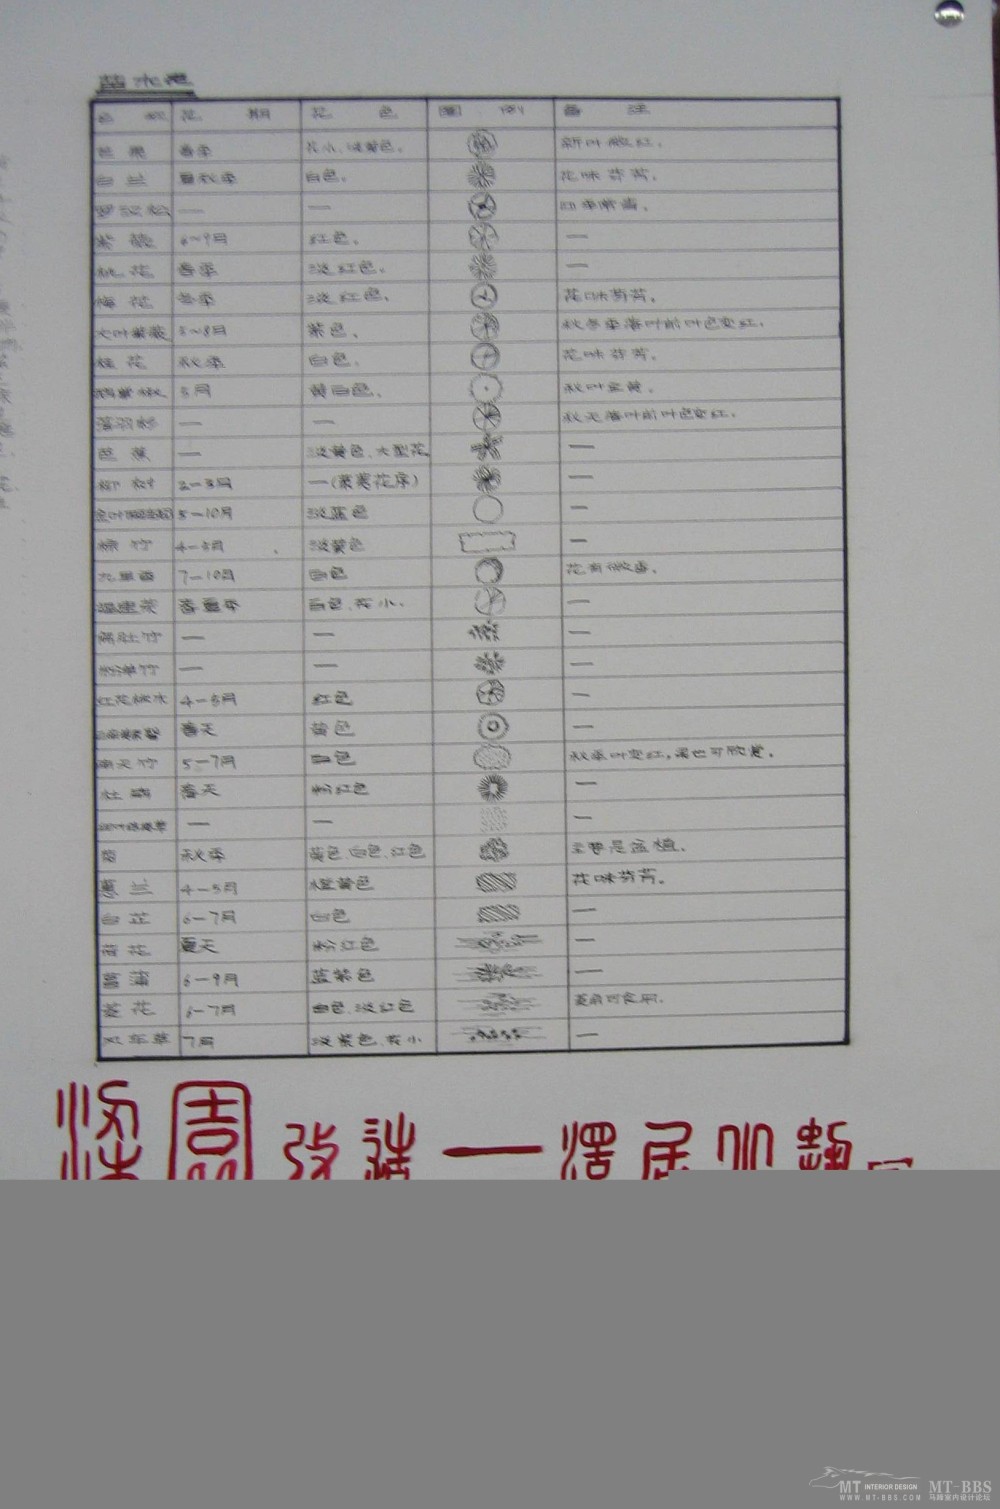 苗木表
名 称 花 期 花 色 圖 例 备 注
芒果 春季 花小,淡黄色。 新叶微红。
白兰 夏秋季 白色。 花味芬芳。
罗汉松 — — 四季常青。
紫薇 6~9月 红色。 —
桃花 春季 淡红色。 —
梅花 冬季 淡红色。 花味芬芳。
大叶紫薇 5~8月 紫色。 秋冬季落叶前叶色变红。
桂花 秋季 白色。 花味芬芳。
5月 黄白色。 秋叶金黄。
落羽杉 — — 秋天落叶前叶色变红。
芭蕉 — 淡黄色、大型花。 —
柳树 2-3月 —(葇荑花序) —
5-10月 淡蓝色 —
4-5月 淡黄色 —
九里香 7-10月 白色 花有微香。
福建茶 春夏季 白色、花小。 —
佛肚竹 — — —
粉单竹 — — —
红花继木 4-5月 红色 —
春天 黄色 —
南天竹 5-7月 白色 秋季叶变红,果也可欣赏。
杜鹃 春天 粉红色 —
— — —
菊 秋季 黄色、白色、红色 主要是盆植。
蕙兰 4-5月 橙黄色 花味芬芳。
白芷 6-7月 白色 —
荷花 夏天 粉红色 —
菖蒲 6-9月 蓝紫色 —
菱花 6-7月 白色、淡红色 菱角可食用。
风车草 7月 淡紫色、花小 —
園 改造 一 澤居
MT INTERIOR DESIGN MT-BBS
WWW.MT-BBS.COM 马蹄室内设计论坛